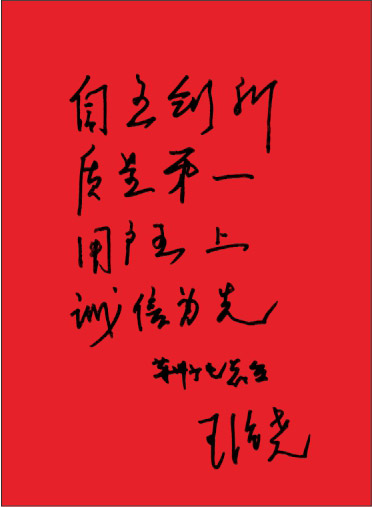 自主创新
质量第一
用户至上
诚信为先